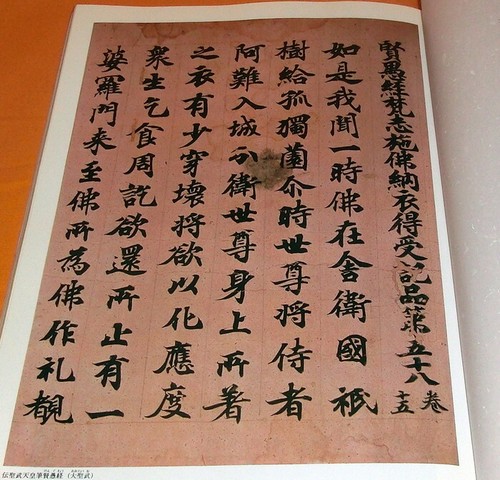 賢愚経梵志施佛納衣得受記品第五十八 卷十五
如是我聞一時佛在舍衛國祇
樹給孤獨薗尒時世尊將侍者
阿難入城分衛世尊身上所著
之衣有少穿壞将欲以化應度
衆生乞食周訖欲還所止有一
婆羅門来至佛所為佛作礼覩
伝聖武天皇筆賢愚経(大聖武)